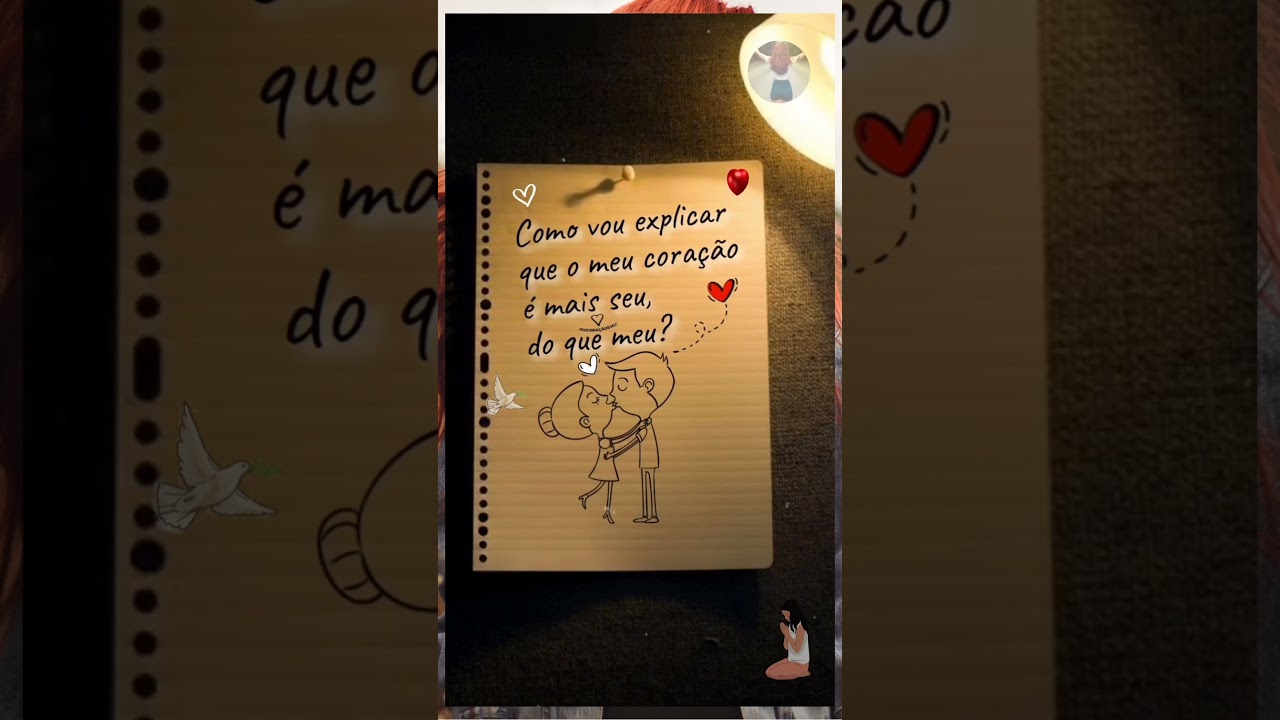 Como vou explicar
que o meu coração
é mais seu,
do que meu?